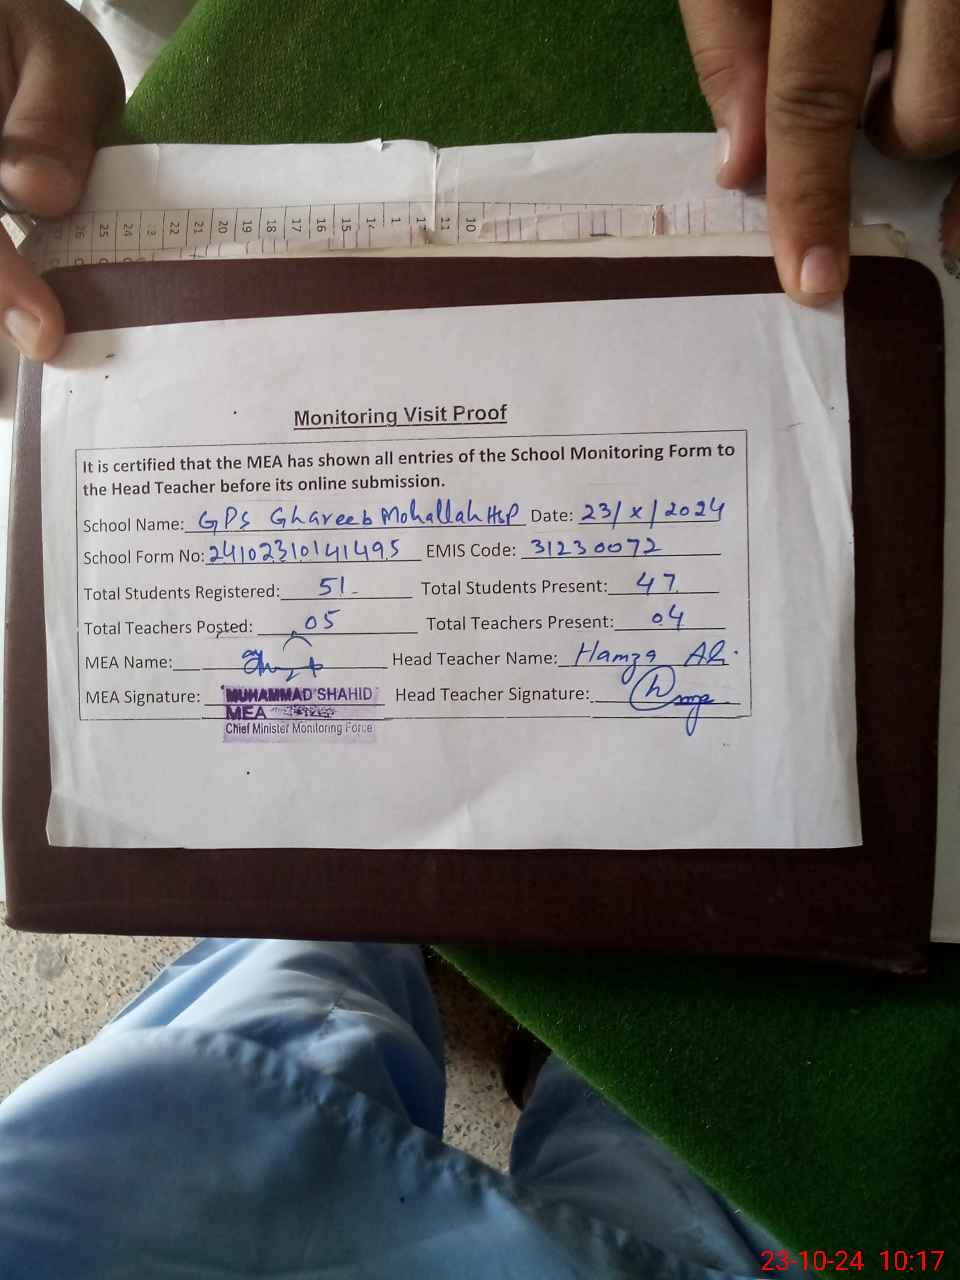 26 25 24 23 22 21 20 19 18 17 16 15 11 10
Monitoring Visit Proof
It is certified that the MEA has shown all entries of the School Monitoring Form to
the Head Teacher before its online submission.
School Name: GPS Ghareeb Mohallah HSP Date: 23/x/2024
School Form No: 24102310141495 EMIS Code: 31230072
Total Students Registered: 51 Total Students Present: 47
Total Teachers Posted: 05 Total Teachers Present: 04
MEA Name: Head Teacher Name: Hamza Ali
MEA Signature: MUHAMMAD SHAHID Head Teacher Signature:
MEA
Chief Minister Monitoring Force
23-10-24 10:17